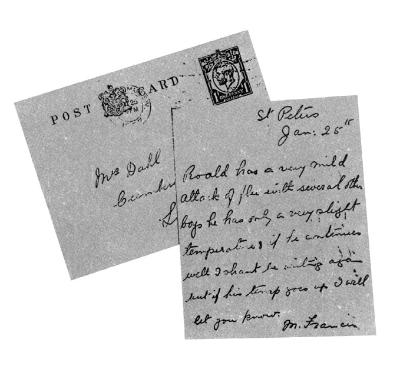 POST CARD
Mrs Dahl
Cumber
St Peters
Jan: 25th
Roald has a very mild
attack of flu with several other
boys he has only a very slight
temperature & if he continues
well I shant be writing again
but if his temp goes up I will
let you know.
M. Francis